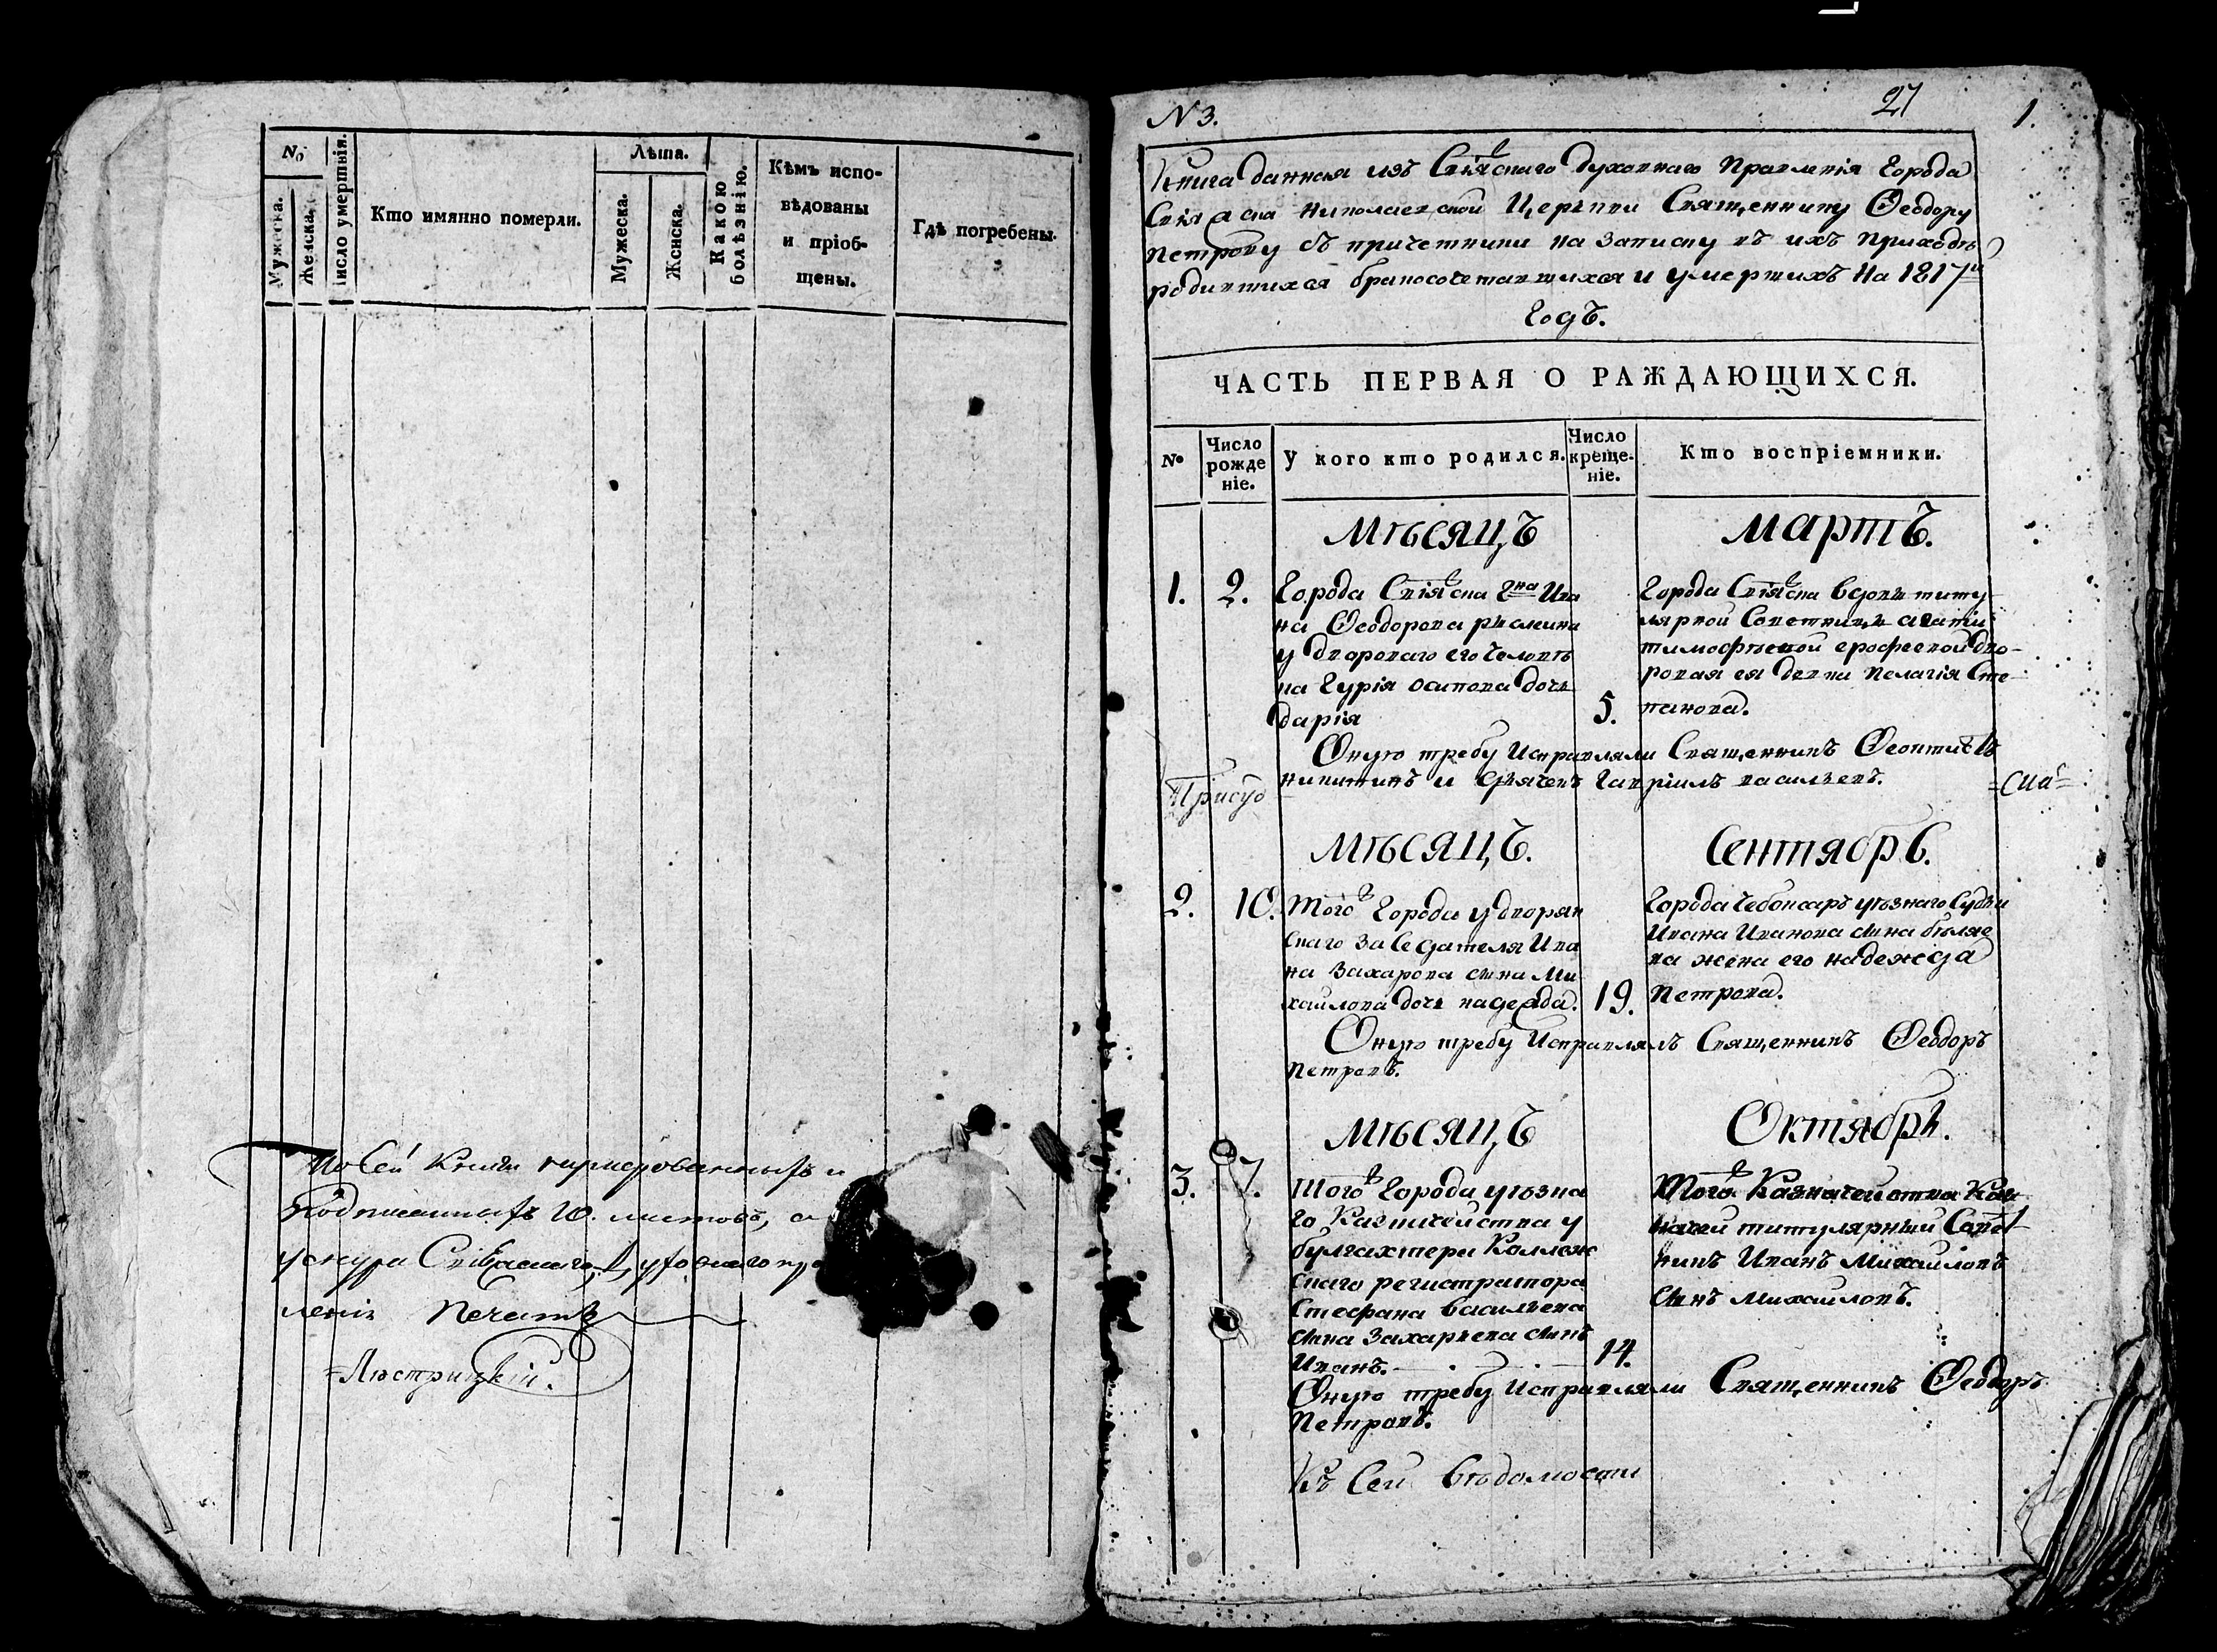 №
Мужеска.
Женска.
Число умертвія.
Кто имянно померли.
Лѣта.
Мужеска.
Женска.
Какою болѣзнію.
Кѣмъ испо-
вѣдованы
и пріоб-
щены.
Гдѣ погребены.
Въ Сей Книги нумерованныхъ и
подписанныхъ 10. листовъ, а
у снура Свіяжскаго Духовнаго пра
ленія Печать
N 3.
27
1.
Книга данная изъ Свіяжскаго Духовнаго Правленія Города
Свіяжска Николаевской Церькви Священнику Феодору
Петрову съ причетники на записку въ ихъ приходѣ
родившихся бракосочетавшихся и умершихъ На 1817й
Годъ.
ЧАСТЬ ПЕРВАЯ О РАЖДАЮЩИХСЯ.
№
Число
рожде
ніе.
У кого кто родился.
Число
креще-
ніе.
Кто воспріемники.
Мѣсяцъ Мартъ.
1. 2.
Города Свіяжска Гна Ива
на Феодорова
у двороваго его человѣ
ка Гурія Осипова дочь
Дарія
5.
Города Свіяжска вдовы титу
лярной Советницы Агафіи
Тимофѣевой Ерофеевой дво-
ровая ея девка Пелагія Сте
панова.
Оную требу Исправляли Священникъ Феоктистъ
Никитинъ и дьячекъ Гавріилъ Васильевъ.
Мѣсяцъ. Сентябрь.
2. 10.
Тогож Города у дворян
скаго заседателя Ива
на Захарова сына Ми
хайлова дочь надежда.
19.
Города Чебоксаръ уѣзнаго Судьи
Ивана Иванова сына бѣляе
ва жена его надежда
Петрова.
Оную требу Исправлялъ Священникъ Феодоръ
Петровъ.
Мѣсяцъ Октябрь.
3. 7.
Тогож Города уѣзна
го Казначейства у
булгахтера Коллеж
скаго регистратора
Стефана Васильева
сына Захарьева сынъ
Иванъ.
14.
Тогож Казначейства Каз
начей титулярный Совет
никъ Иванъ Михайловъ
сынъ Михайловъ.
Оную требу Исправляли Священникъ Феодоръ
Петровъ.
Къ Сей Вѣдомости